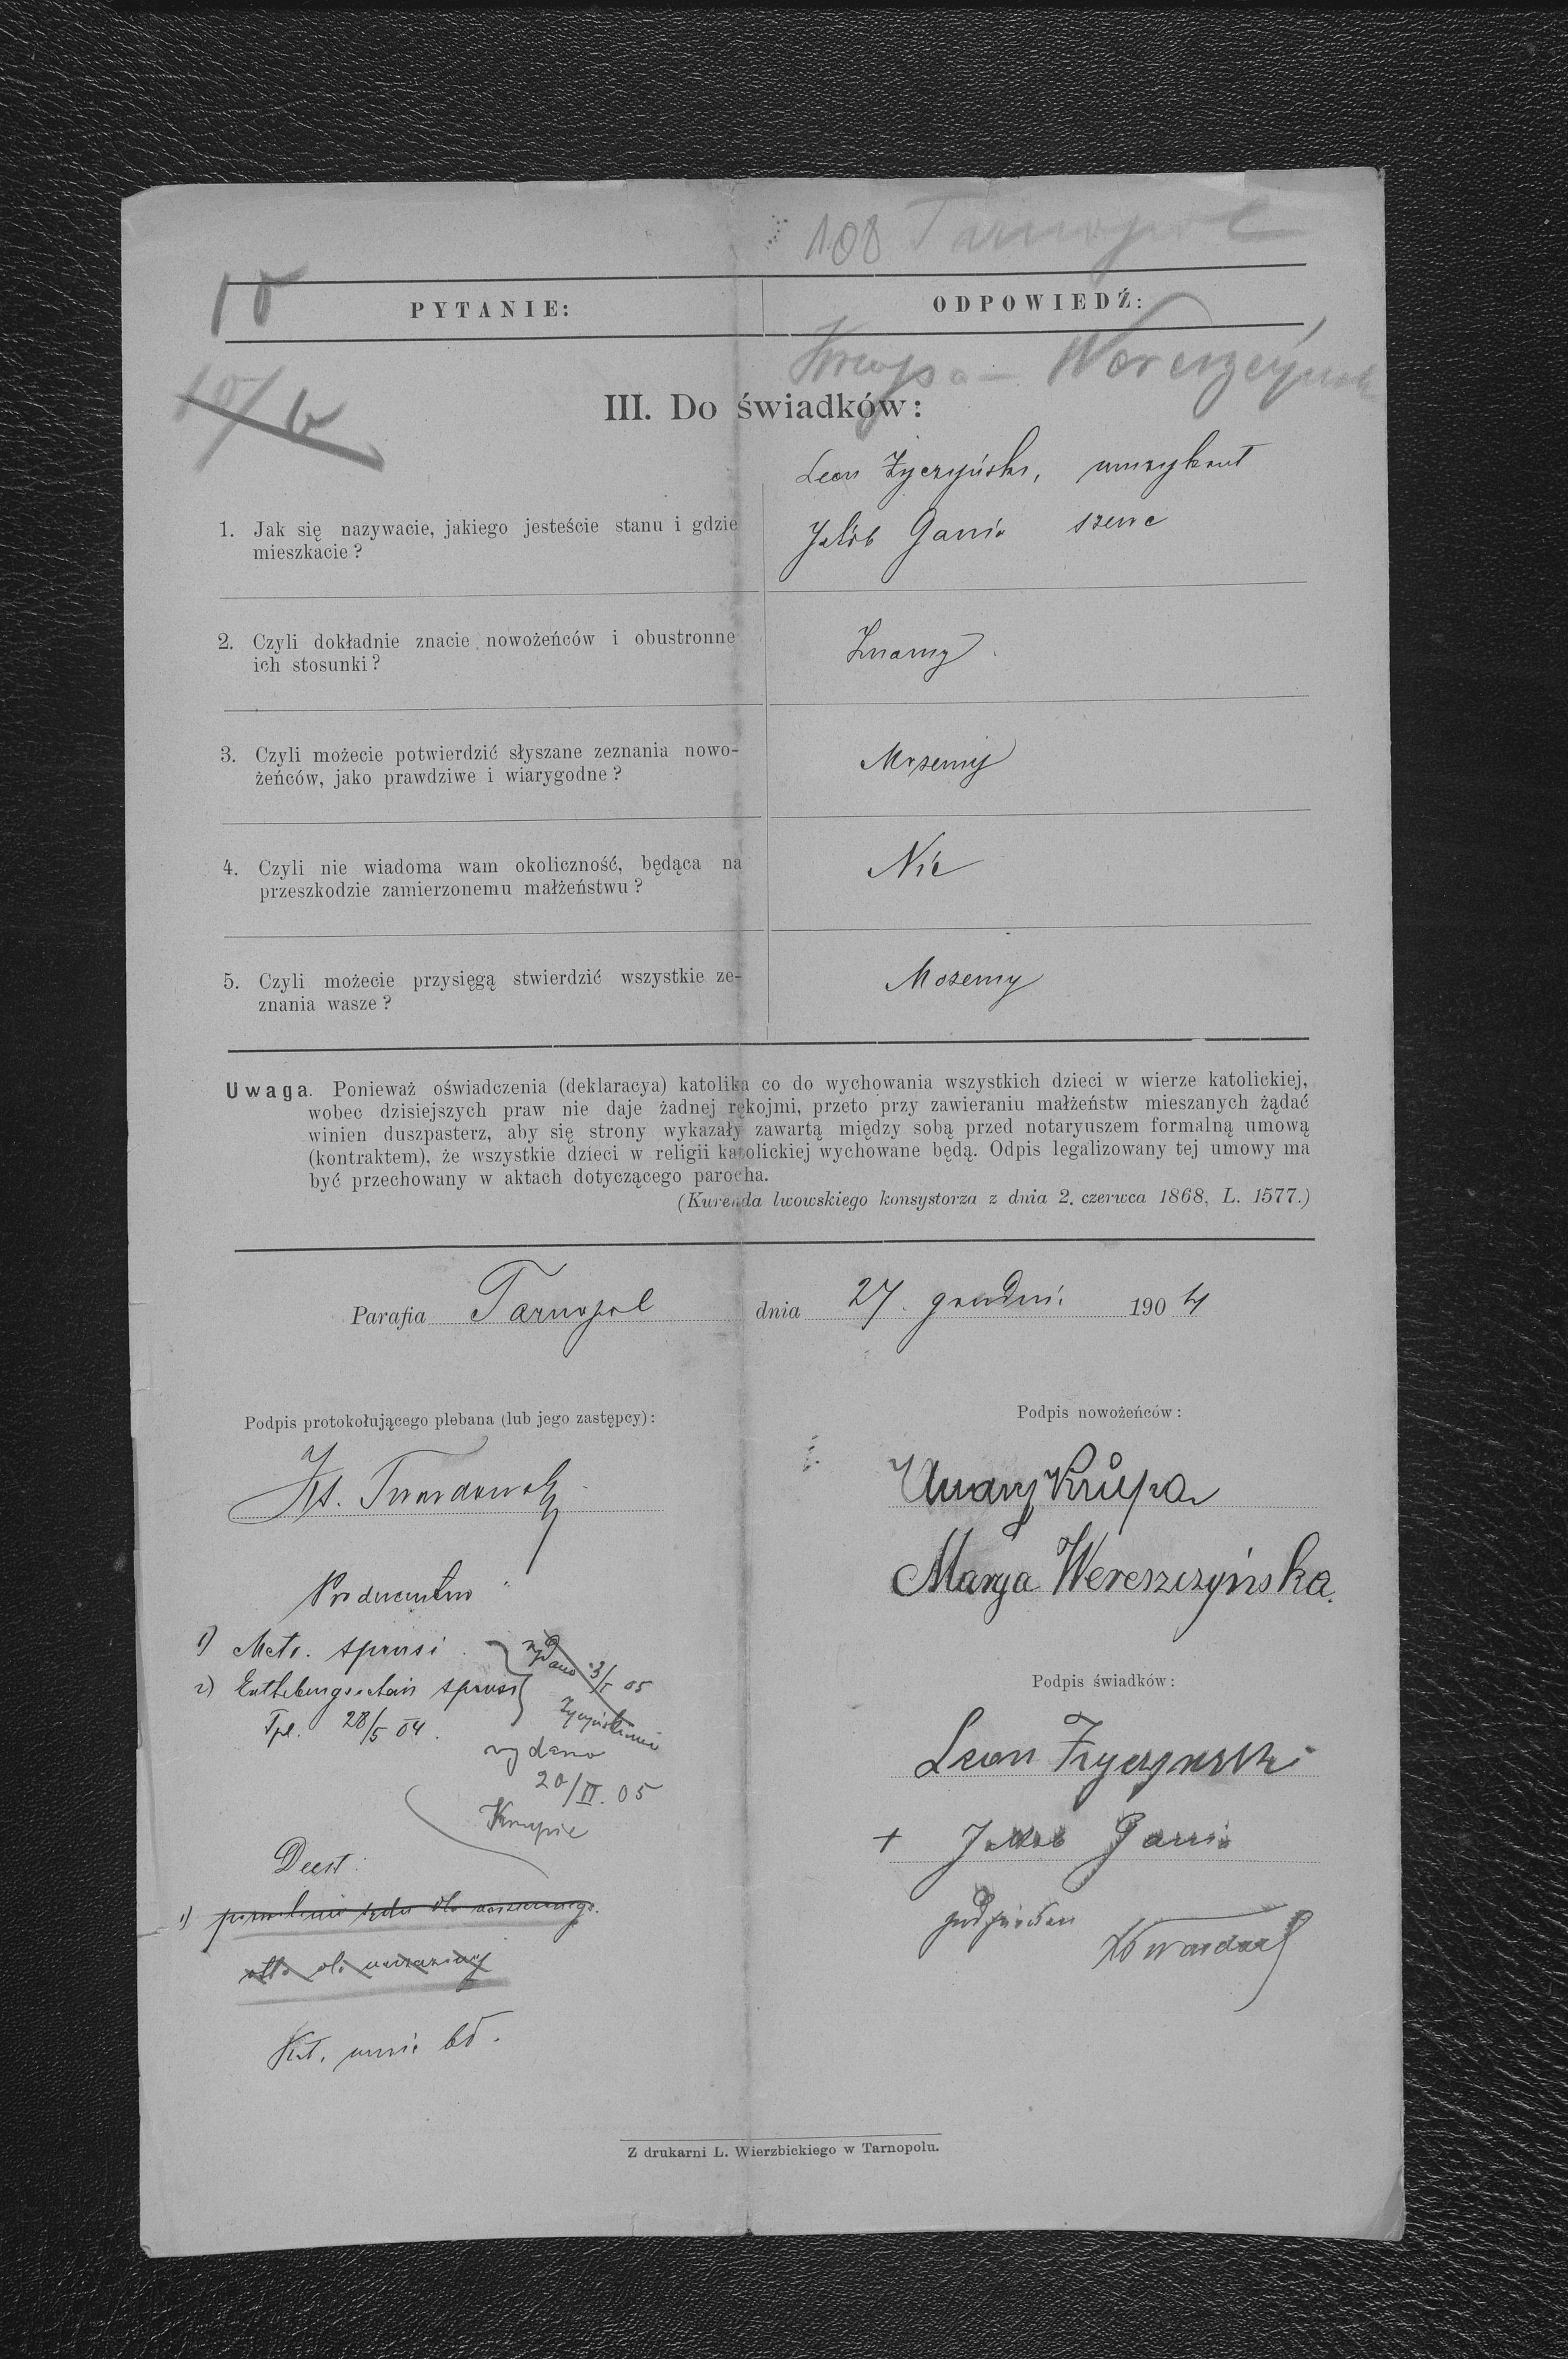 108 Tarnopol
10
PYTANIE: ODPOWIEDŹ:
Krupa - Wereszczyńska
10/b
III. Do świadków:
Leon Życzyński, muzykant
1. Jak się nazywacie, jakiego jesteście stanu i gdzie
mieszkacie?
Jakób Gania szewc
2. Czyli dokładnie znacie nowożeńców i obustronne
ich stosunki?
Znamy.
3. Czyli możecie potwierdzić słyszane zeznania nowo-
żeńców, jako prawdziwe i wiarygodne?
Możemy
4. Czyli nie wiadoma wam okoliczność, będąca na
przeszkodzie zamierzonemu małżeństwu?
Nie
5. Czyli możecie przysięgą stwierdzić wszystkie ze-
znania wasze?
Możemy
Uwaga. Ponieważ oświadczenia (deklaracya) katolika co do wychowania wszystkich dzieci w wierze katolickiej,
wobec dzisiejszych praw nie daje żadnej rękojmi, przeto przy zawieraniu małżeństw mieszanych żądać
winien duszpasterz, aby się strony wykazały zawartą między sobą przed notaryuszem formalną umową
(kontraktem), że wszystkie dzieci w religii katolickiej wychowane będą. Odpis legalizowany tej umowy ma
być przechowany w aktach dotyczącego parocha.
(Kurenda lwowskiego konsystorza z dnia 2. czerwca 1868, L. 1577.)
Parafia Tarnopol dnia 27. grudnia 1904
Podpis protokołującego plebana (lub jego zastępcy):
Podpis nowożeńców:
Twardowski
Krupa
Marya Wereszczyńska.
1) Metr. sponsi
2) sponsi
Tpl. 28/5 04.
wydano 3/I 05
Życzyńskiemu
wydano
20/II. 05
Krupie
Podpis świadków:
Leon Życzyński
+ Jakób Gania
Deest:
1)
Z drukarni L. Wierzbickiego w Tarnopolu.